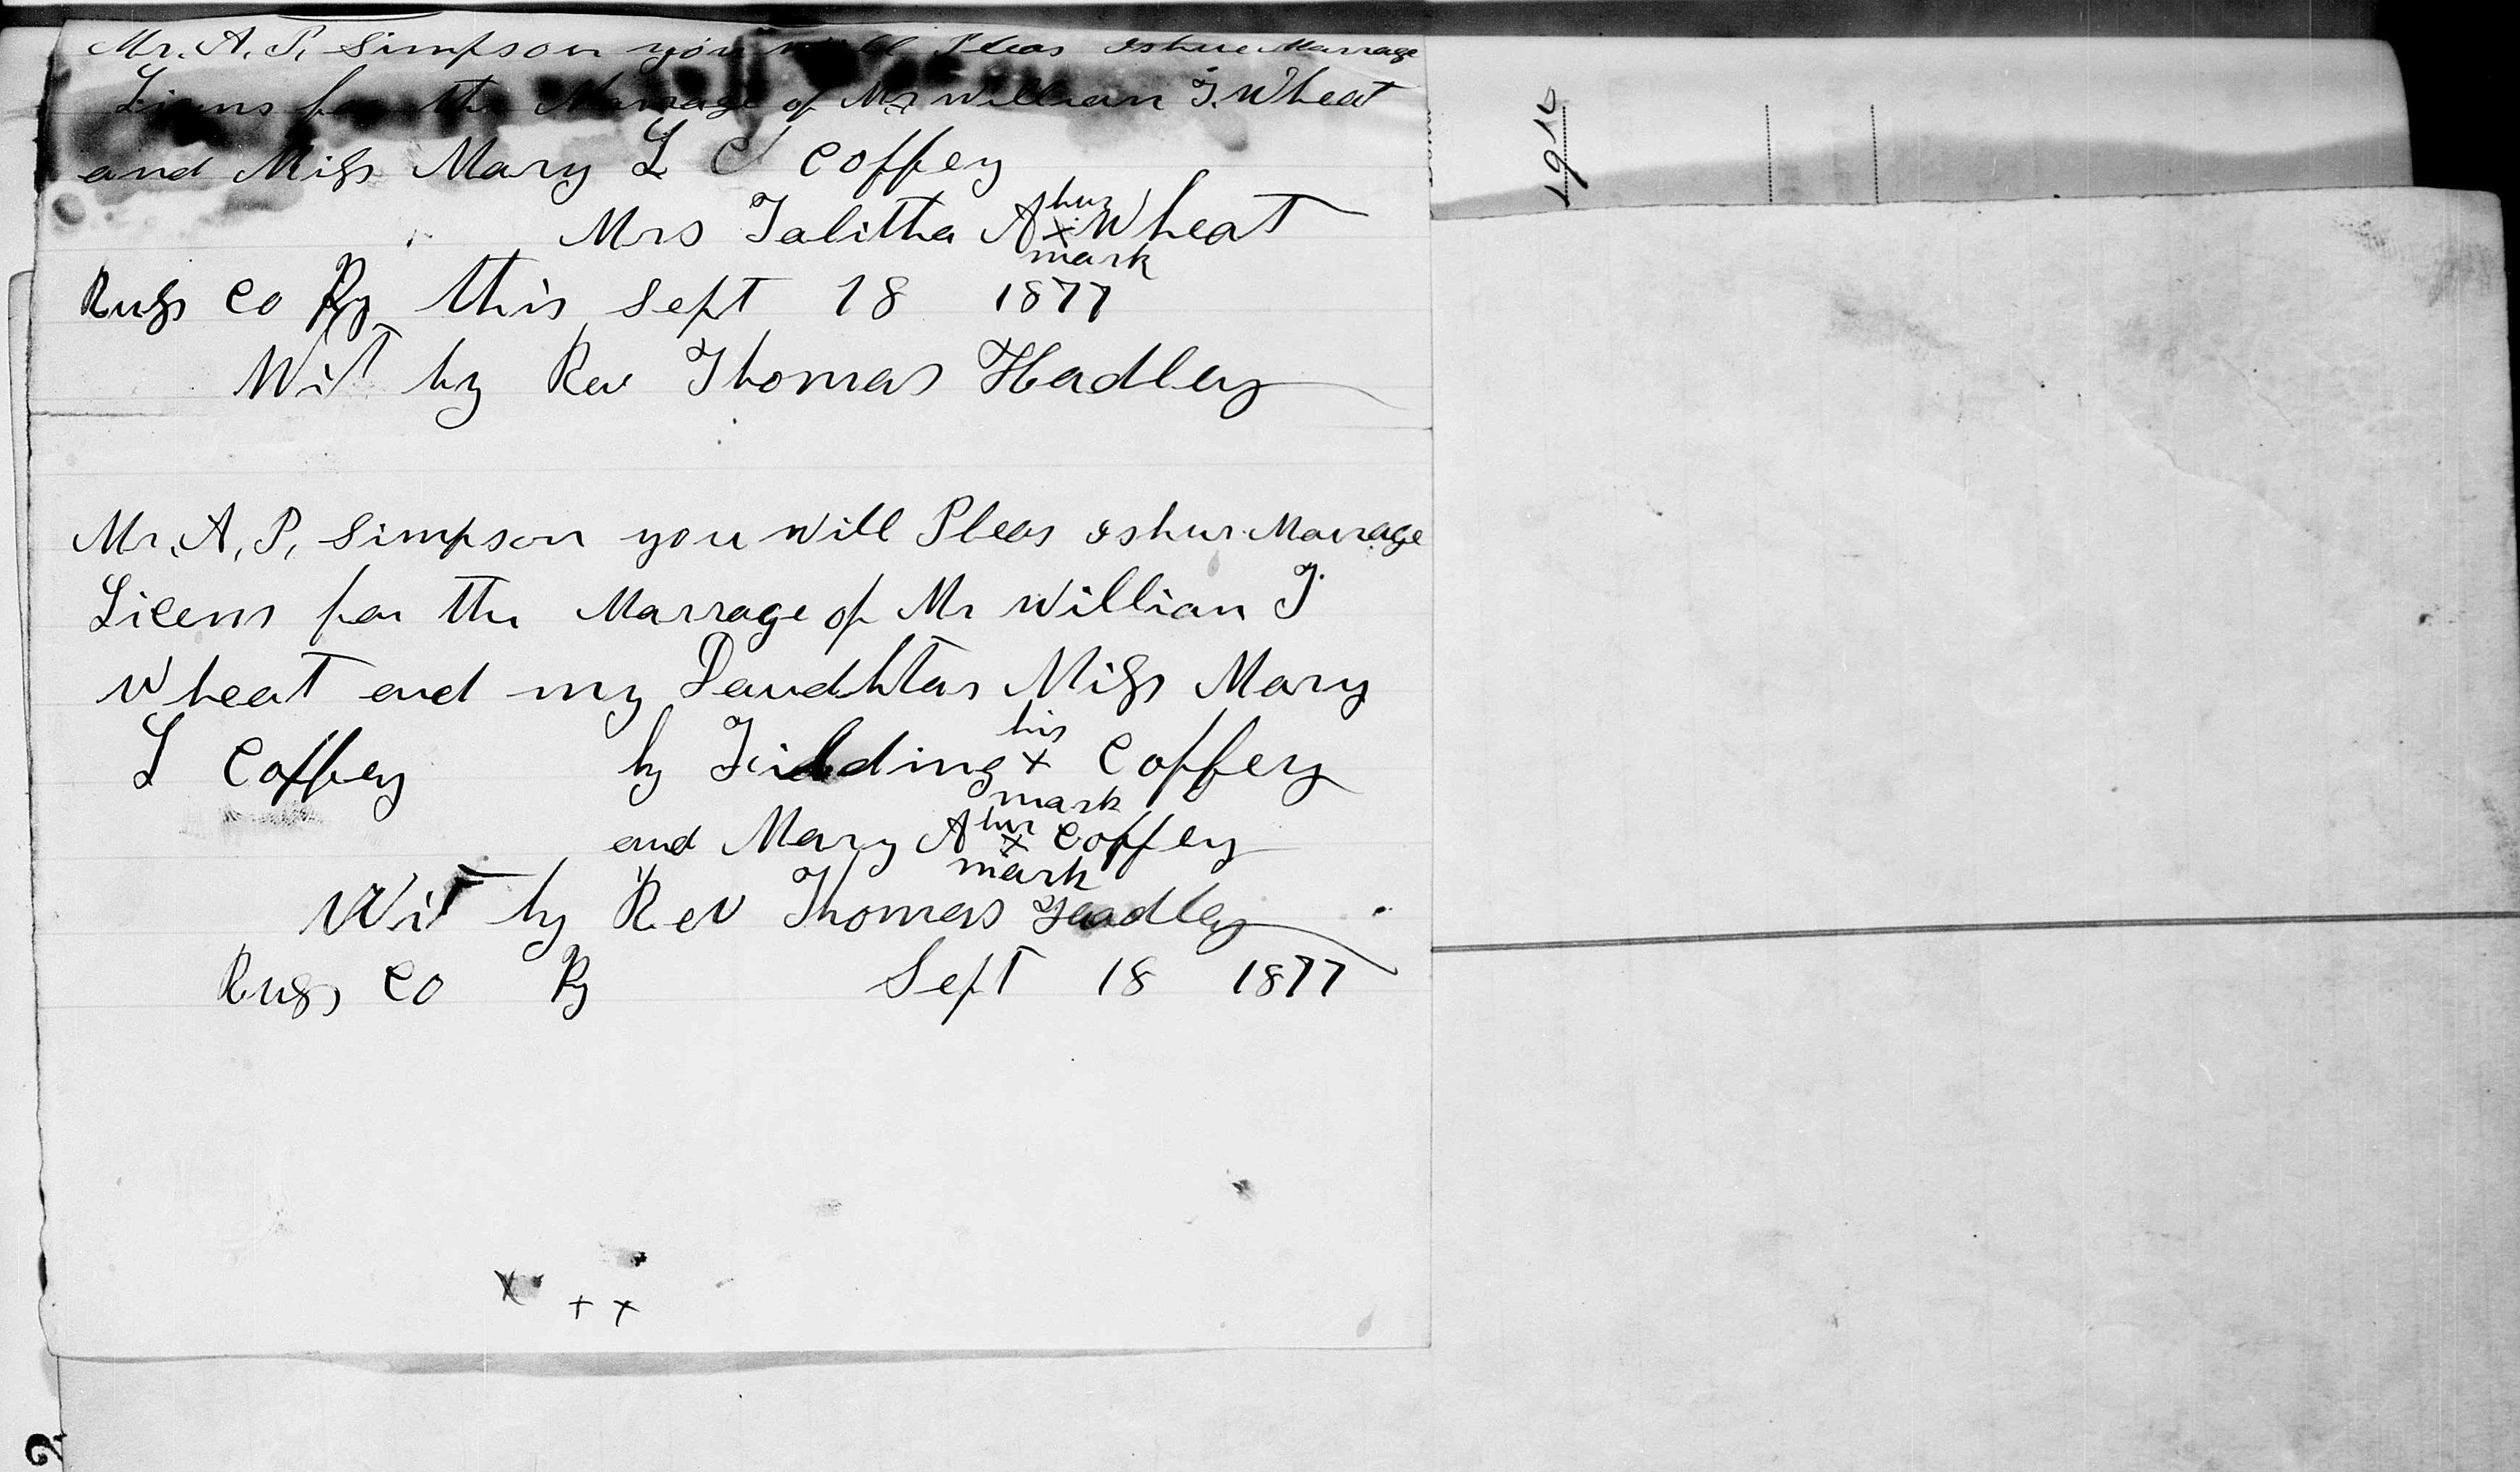 Mr. A. P. Simpson you will Pleas ishue Marrage
Licens for the Marrage of Mr Willian T. Wheat
and Miss Mary L C Coffey
Mrs Talitha A her x mark Wheat
Russ Co Ky this Sept 18 1877
Wit by Rev Thomas Hadley
Mr. A. P. Simpson you will Pleas ishur Marrage
Licens for the Marrage of Mr Willian T.
Wheat and my Daudhtar Miss Mary
L Coffey by Fielding his x mark Coffey
and Mary A her x mark Coffey
Wit by Rev Thomas Hadley
Russ Co Ky Sept 18 1877
x + +